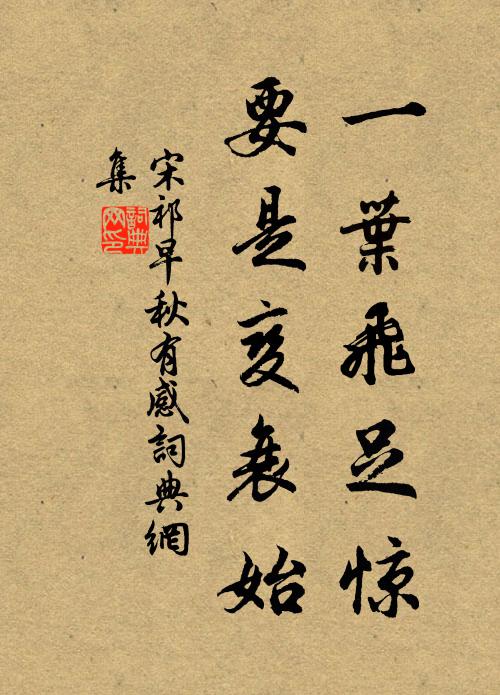 一葉飛足惊
要是变衰始
宋祁早秋有感詞典網
集
詞典
网印